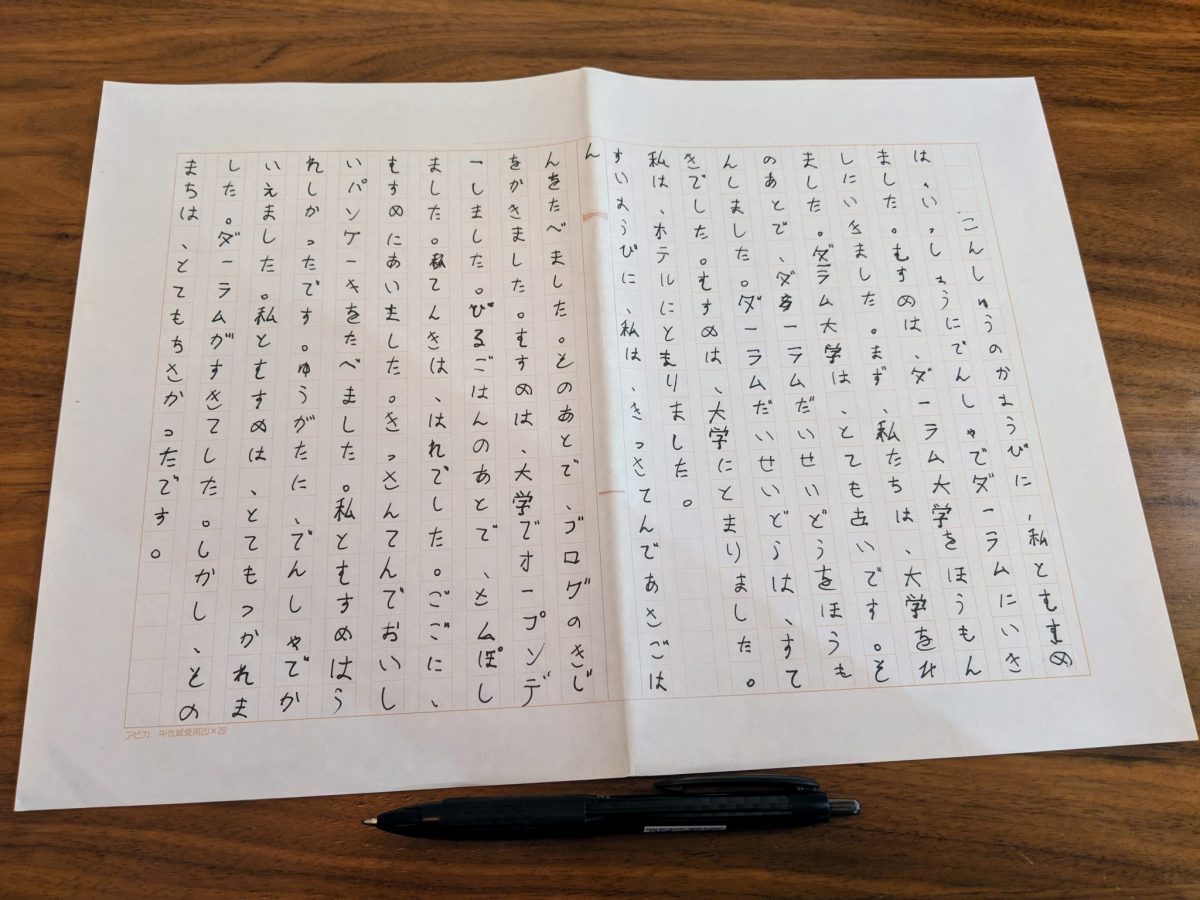 こんしゅうのかようびに、私とむすめ
は、いっしょうにでんしゃでダーラムにいき
ました。むすめは、ダーラム大学をほうもん
しにいきました。まず、私たちは、大学をみ
ました。ダラム大学は、とても古いです。そ
のあとで、ダーラムだいせいどうをほうも
んしました。ダーラムだいせいどうは、すて
きでした。むすめは、大学にとまりました。
私は、ホテルにとまりました。
すいようびに、私は、きっさてんであさごは
ん
んをたべました。そのあとで、ブログのきじ
をかきました。むすめは、大学でオープンデ
ーしました。ひるごはんのあとで、さんぽし
ました。私てんきは、はれでした。ごごに、
むすめにあいました。きっさんてんでおいし
いパンケーキをたべました。私とむすめはう
れしかったです。ゆうがたに、でんしゃでか
いえました。私とむすめは、とてもつかれま
した。ダーラムがすきてした。しかし、その
まちは、とてもちさかったです。
アピカ 中性紙使用20×20